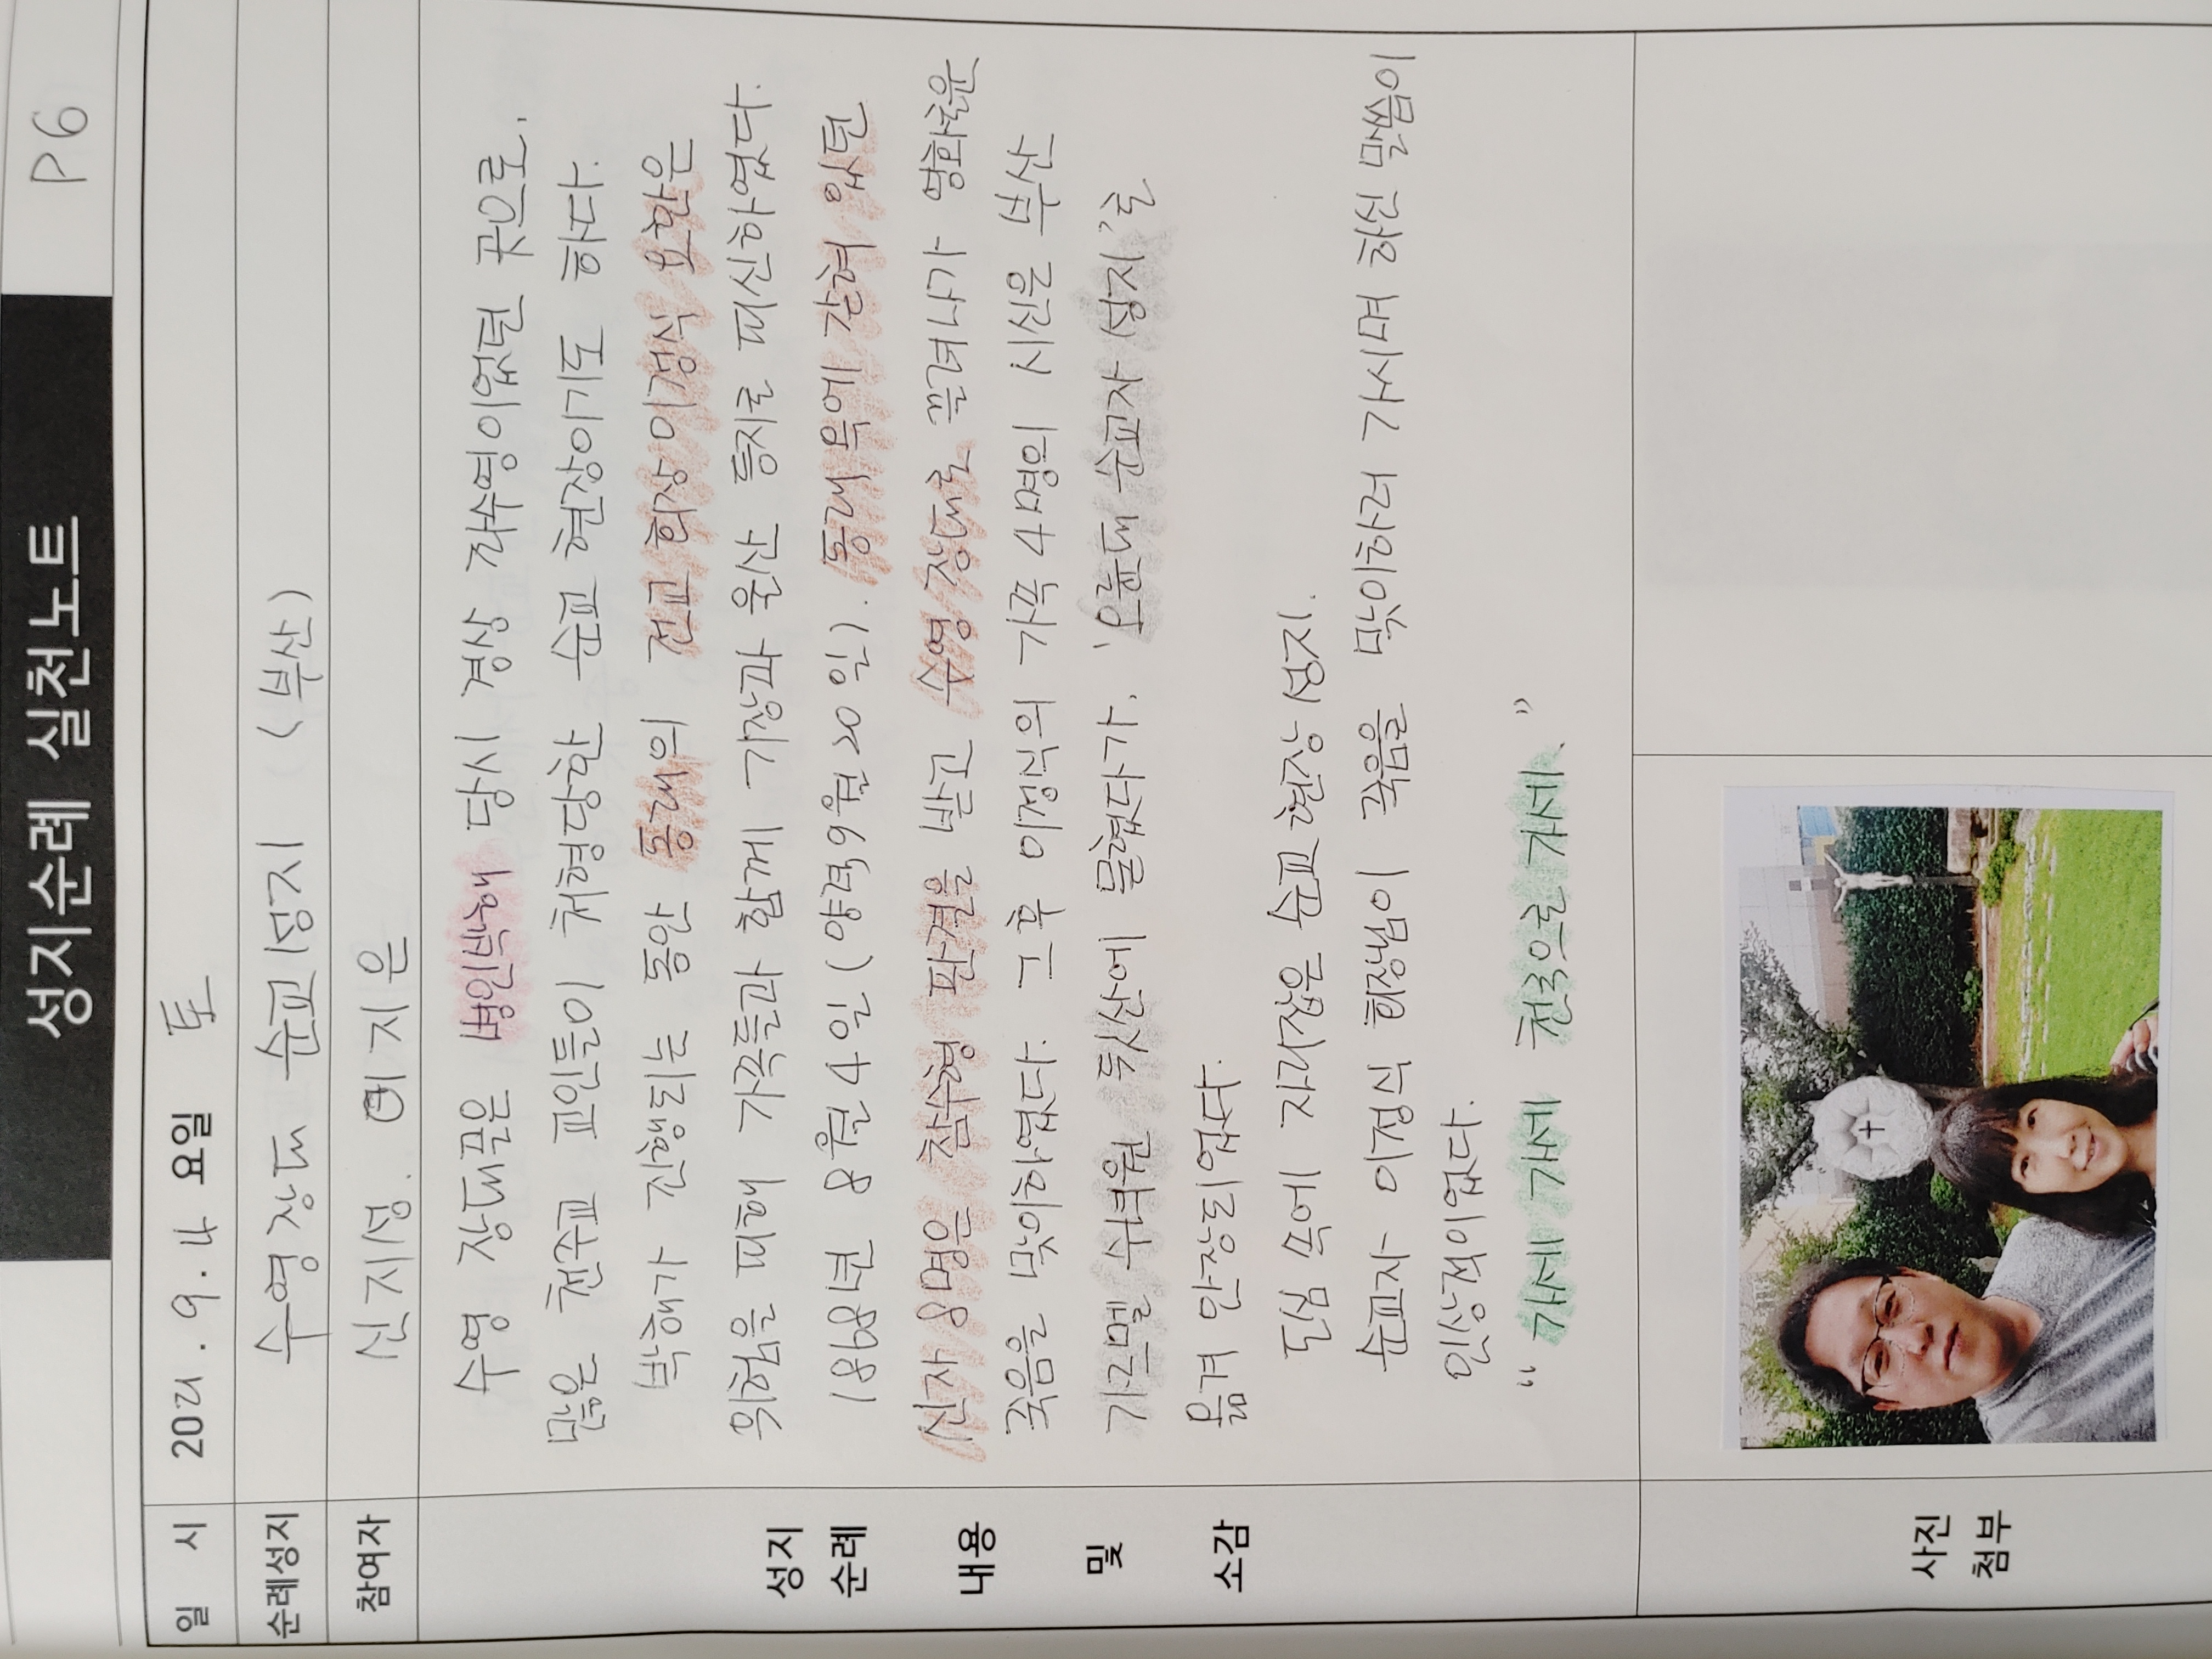 성지순례 실천노트
P6
일 시 2021. 9. 4 요일 토
순례성지 수영장대 순교성지 (부산)
참여자 신지성. 이지은
성지
순례
내용
및
소감
수영 장대골은 병인박해 당시 경상 좌수영이었던 곳으로.
많은 천주교 교인들이 처형당한 순교 현장이기도 하다.
박해가 진행되는 동안 동래의 전교회장 이정식 요한은
위험을 피해 가족들과 함께 기장과 울산 등지로 피신하였다.
1868년 8월 4일 (양력 9월 20일). 동래 옥에 갇혀 있던
신자 8명은 참수형 판결을 받고 수영 장대로 끌려나가 영화로운
죽음을 맞이하였다. 그 후 이정식의 가족 4명의 시신은 부산
가르멜 수녀원 뒷산에 묻혔다가. '오륜대 순교자 성지'로
옮겨 안장되었다.
도심 속에 자리잡은 순교 현장 성지.
순교자 이정식 회장님이 죽음을 맞이하러 가시며 하신 말씀이
인상적이었다.
“ 가세 가세 천국으로 가세. ”
사진
첨부